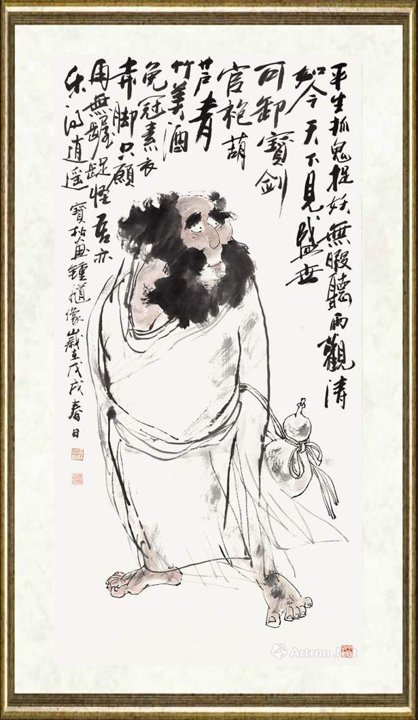 平生抓鬼捉妖無暇聽雨觀清
如今天下見盛世
可卸寶劍
官袍葫
芦青
竹美酒
免冠素衣
赤脚只顧
周無龌龊怪吾亦
乐得逍遥 寶画鍾馗像歲在戊戌春日
Artron.Net